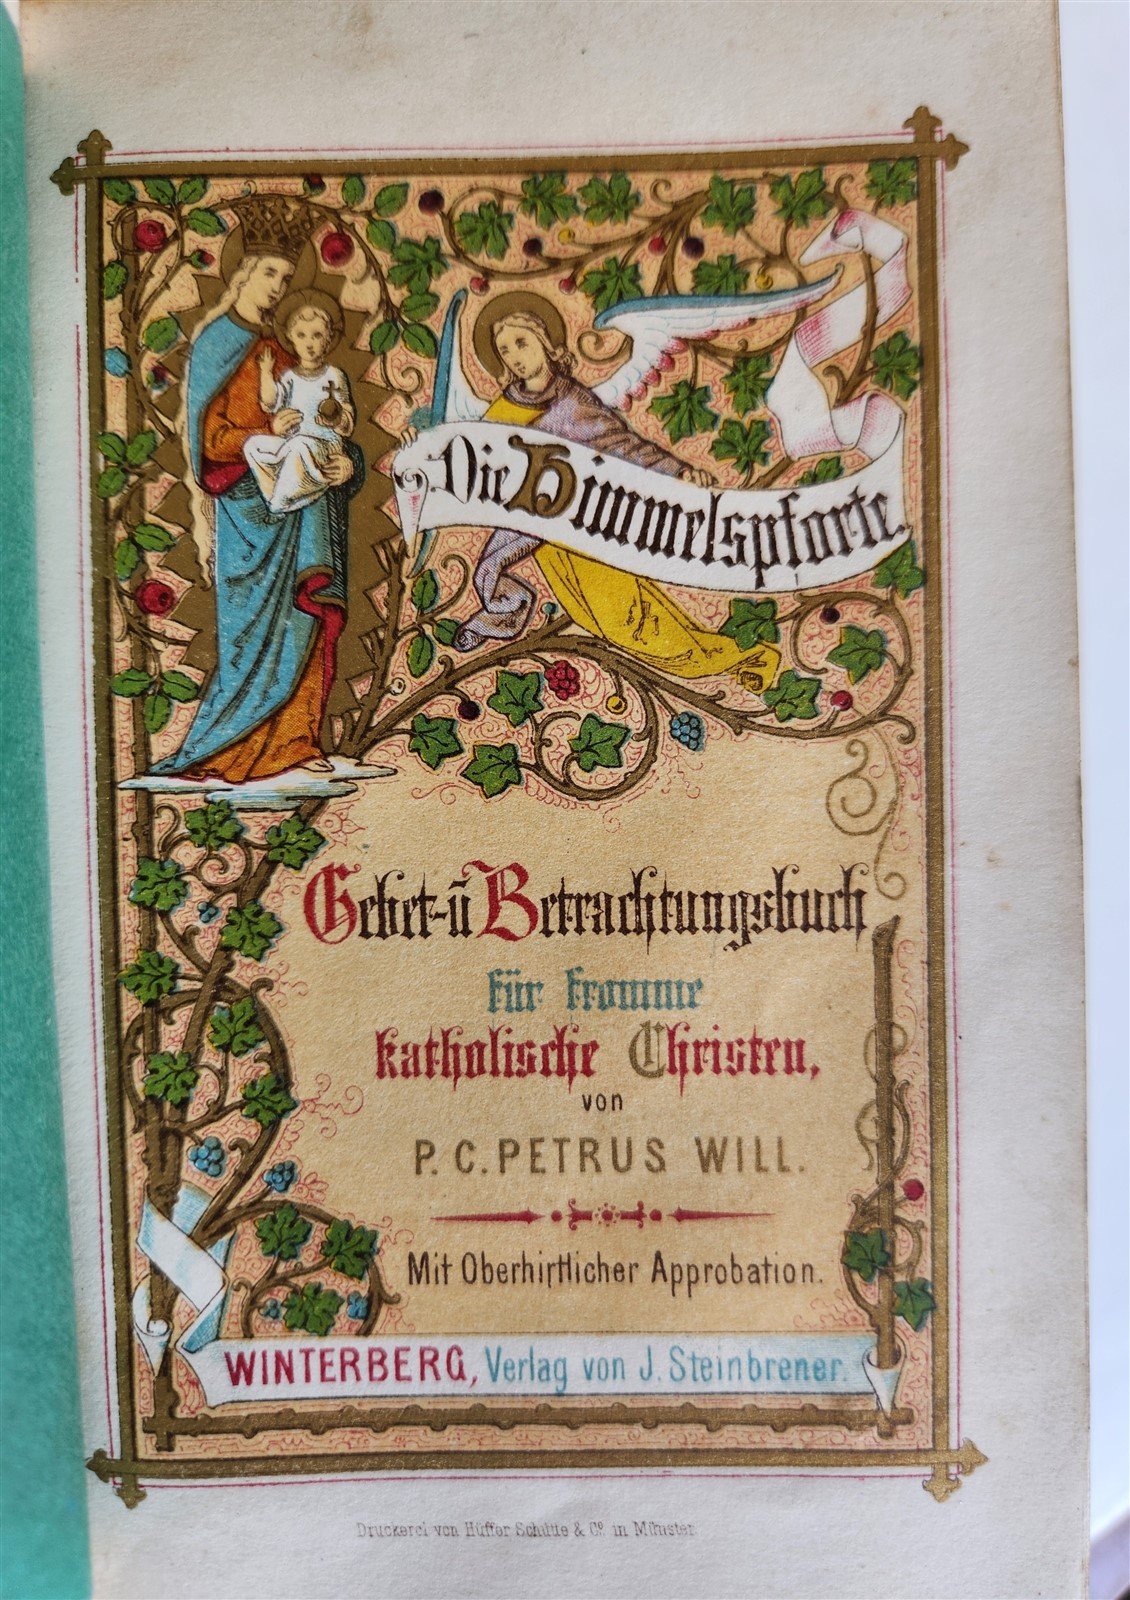 Die Himmelspforte.
Gebet- u̅ Betrachtungsbuch
für fromme
katholische Christen,
von
P. C. PETRUS WILL.
Mit Oberhirtlicher Approbation.
WINTERBERG, Verlag von J. Steinbrener.
Druckerei von Hüffer Schütte & Cº. in Münster.